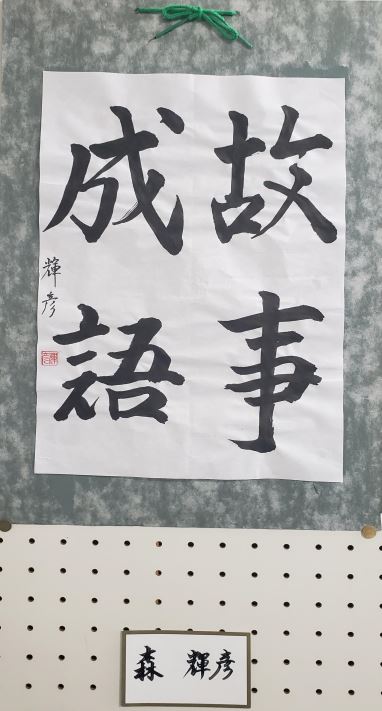 故事
成語
輝彦
森 輝彦